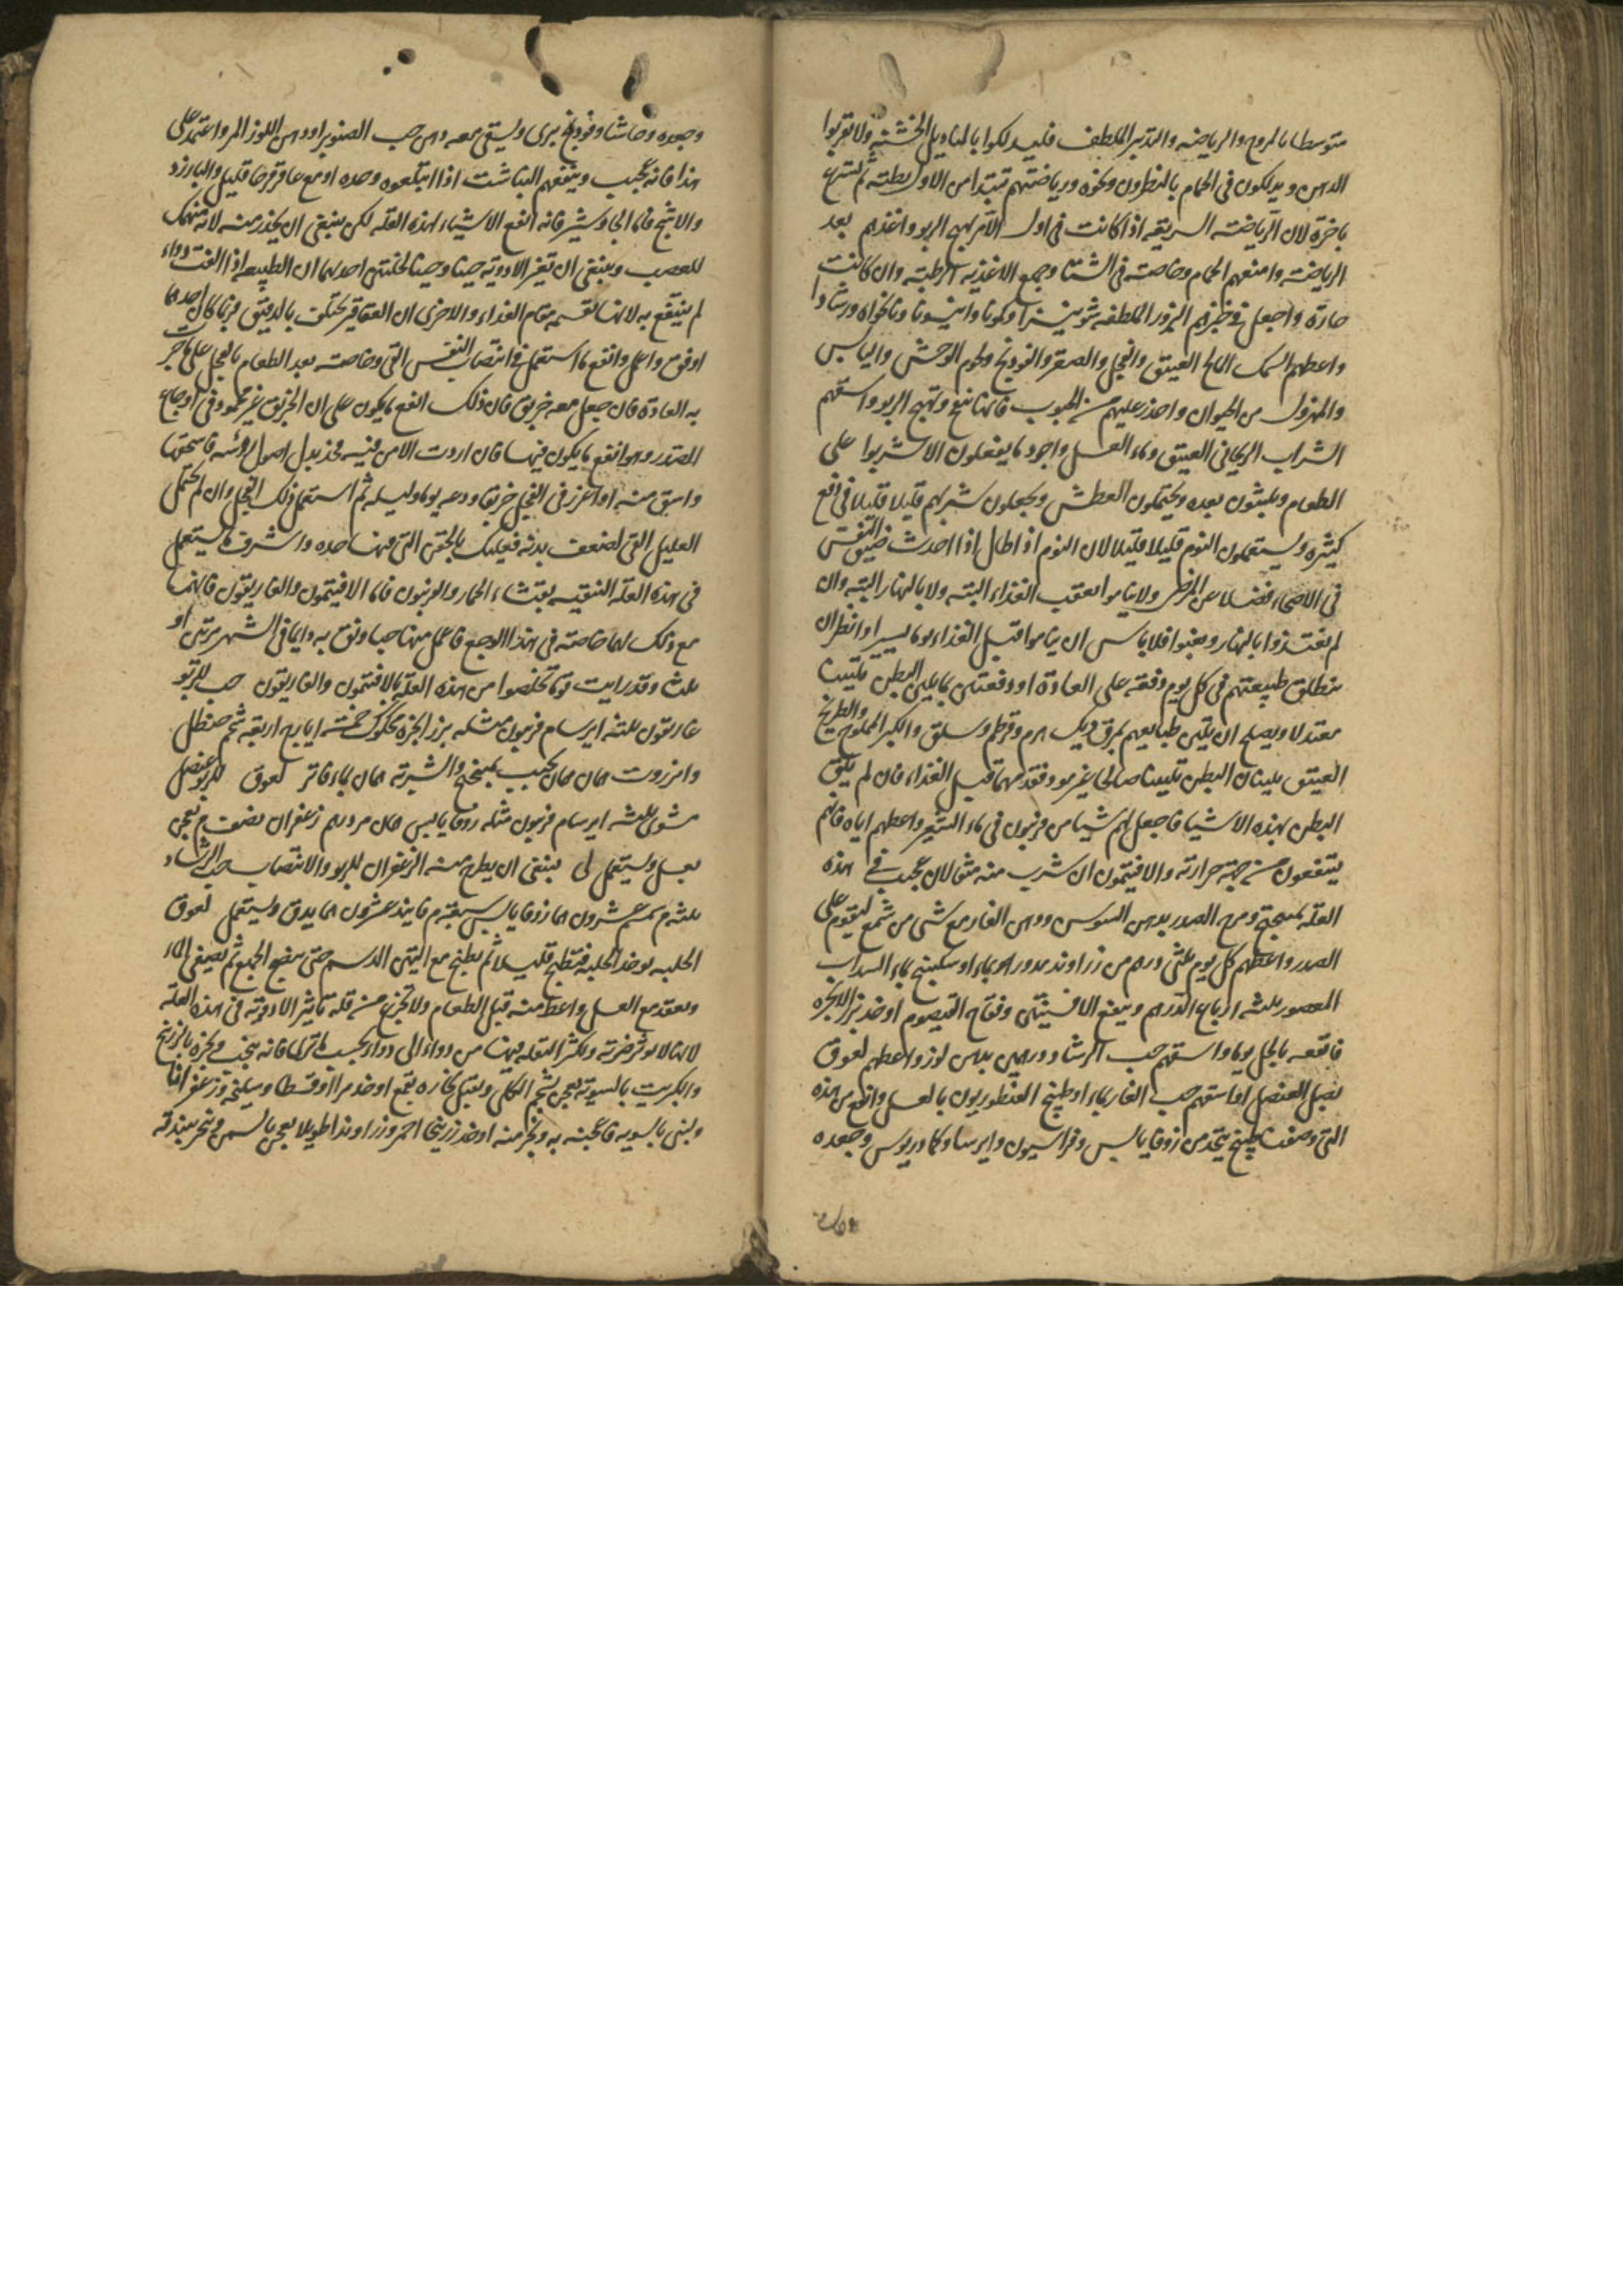 متوسطا بالمروخ والرياضه والتدبير الملطف فليدلكوا بالمناديل الخشنة ولا تقربوا
الدهن ويدلكون في الحمام بالنطرون ونحوه ورياضتهم تبتدا من الاول بطيئة ثم تسرع
باخرة لان الرياضة السريعه اذا كانت في اول الامر تهيج الربو واغذهم بعد
الرياضة وامنعهم الحمام وخاصة في الشتا وجميع الاغذيه الرطبة وان كانت
حارة واجعل في خبزهم البزور الملطفه شونيزا وكمونا وانيسونا ونانخواه ورشادا
واعطهم السمك المالح العتيق والفجل والصعتر والفودنج ولحوم الوحش واليابس
والمهزول من الحيوان واحذر عليهم من الحبوب فانها تنفخ وتهيج الربو واسقهم
الشراب الريحاني العتيق وماء العسل واجود ما يفعلون الا يشربوا على
الطعام ويلبثون بعده ويحتملون العطش ويجعلون شربهم قليلا قليلا في دفع
كثيره ويستعملون النوم قليلا قليلا لان النوم اذا طال اذا احدث ضيق النفس
في الاصحاء فضلا عن المرضى ولا يناموا بعقب الغذاء البتة ولا بالنهار البتة وان
لم يغتذوا بالنهار وتعبوا فلا باس ان يناموا قبل الغذاء نوما يسيرا وانظر ان
تنطلق طبيعتهم في كل يوم دفعه على العادة او دفعتين بما يلين البطن تليينا
معتدلا ويصلح ان يلين طبايعهم بمرق ديك هرم وقرطم وسلق والكبر المملوح والطريخ
العتيق يلينان البطن تليينا صالحا غير مود فقدمهما قبل الغذاء فان لم يلين
البطن بهذه الاشيا فاجعل لهم شيا من فربيون في ماء الشعير واعطهم اياه فانهم
ينتفعون من جهة حرارته والافتيمون ان شرب منه مثقالان عجيب في هذه
العله بميبختج ومرخ الصدر بدهن السوسن ودهن الغار مع شى من شمع ليقوم على
الصدر واعطهم كل يوم ثلثى درهم من زراوند مدور بماء او سكبينج بماء السداب
المعصور ثلثه ارباع الدرهم وينفع الافسنتين وفقاح القيصوم او خذ بزر الانجره
فانقعه بالخل يوما واسقهم حب الرشاد ودرهمين بدهن لوز واعطهم لعوق
بصل العنصل او اسقهم حب الغار بماء او طبيخ القنطوريون بالعسل وانفع من هذه
التي وصفت طبيخ يتخذ من زوفا يابس وفراسيون وايرسا وكمادريوس وجعده
وجعده وحاشا وفودنج برى وليسقى معه دهن حب الصنوبر او دهن اللوز المر واعتمد على
هذا فانه عجيب وينفعهم القناشت اذا ابتلعوه وحده او مع عاقرقرحا قليل والبارزد
والاشج فاما الجاوشير فانه انفع الاشياء لهذه العله لكن ينبغي ان يحذر منه لانه ينهك
للعصب وينبغي ان تغير الادوية حينا وحينا لخلتين احديهما ان الطبيعه اذا الفت دواء
لم ينتفع به لانها تقيمه مقام الغذاء والاخرى ان العقاقير تختلف بالدقيق فربما كان احدها
اوفق واعمل وانفع ما استعمل في انتصاب النفس القى وخاصة بعد الطعام بالفجل على ما جرت
به العادة فان جعل معه خربق فان ذلك انفع ما يكون على ان الخربق غير محمود في اوجاع
الصدر وهو انفع ما يكون فيها فان اردت الامن فيه فخذ بدل اصول رؤسه فاسحقها
واسق منه او اغرز في الفجل خربقا ودعه يوما وليله ثم استعمل ذلك الفجل وان لم يحتمل
العليل القى لضعف بدنه فعليك بالحقن التي فيها حده واشرف ما يستعمل
في هذه العله التنقيه بقثاء الحمار والفربيون فاما الافتيمون والغاريقون فانهما
مع ذلك لهما خاصة في هذا الوجع فاعمل منها حبا ونق به دايما في الشهر مرتين او
ثلث وقد رايت قوما تخلصوا من هذه العلة بالافتيمون والغاريقون حب للربو
غاريقون ثلثه ايرسا م فربيون مثله بزر انجره محكوك خمسة ايارج اربعة شحم حنظل
وانزروت يحبب بميبختج والشربة بماء فاتر لعوق للربو عنصل
مشوى ثلثه ايرسام فربيون مثله زوفا يابس مر درهم زعفران نصف م يعجن
بعسل ويستعمل لى ينبغي ان يطرح منه الزعفران للربو والانتصاب حب الرشاد
ثلثه م سمسم عشرون زوفا يابس سبعة م فانيذ عشرون يدق ويستعمل لعوق
الحلبه يوخذ الحلبه فتطبخ قليلا ثم يطبخ مع التين الدسم حتى ينضج الجميع ثم يصفى الماء
ويعقد مع العسل واعط منه قبل الطعام ولا تجزع من قلة تاثير الادوية في هذه العلة
لانها لا يوثر ضربة ويكثر النقله فيها من دواء الى دواء بحسب ما ترى فانه يجب ويبخره بالزرنيخ
والكبريت بالسوية يعجن بشحم الكلى ويقبل بخاره بقمع او خذ مرا وقسطا وسليخه وزعفرانا
ولبنى بالسويه فاعجنه به وبخر منه او خذ زرنيخا احمر وزراوندا طويلا يعجن بالسمن ويبخر ببندقه